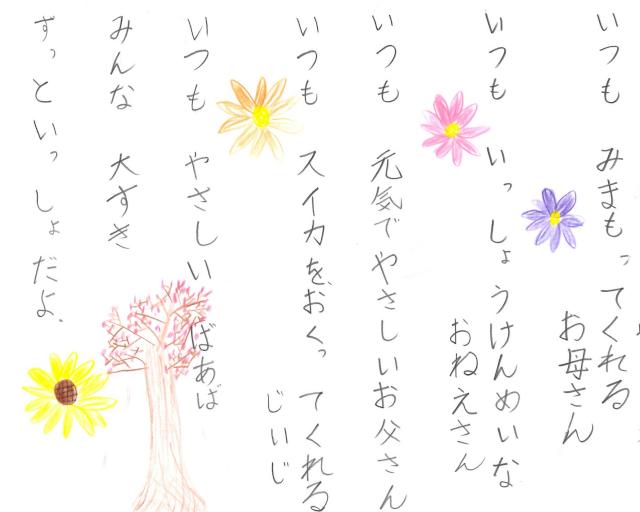 いつも みまもってくれる
お母さん
いつも いっしょうけんめいな
おねえさん
いつも 元気でやさしいお父さん
いつも スイカを、おくってくれる
じいじ
いつも やさしい ばあば
みんな 大すき
ずっといっしょだよ、